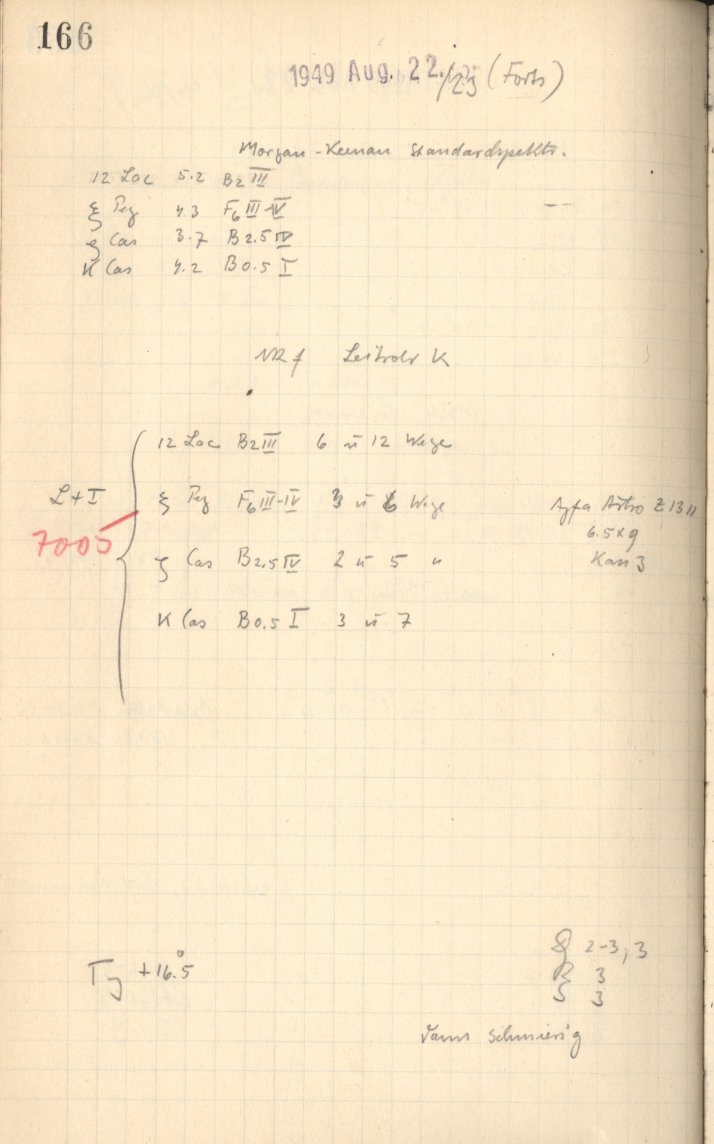 166
1949 Aug. 22./23 (Forts)
Morgan-Keenan Standardspektr.
12 Lac 5.2 B2 III
ξ Peg 4.3 F6 III-IV —
ζ Cas 3.7 B2.5 IV
κ Cas 4.2 B0.5 I
f Leitrohr K
12 Lac B2 III 6 u 12 Wege
L+I
ξ Peg F6 III-IV 3 u 6 Wege
Agfa Astro Z
6.5x9
Kass 3
7005
ζ Cas B2.5 IV 2 u 5 "
κ Cas B0.5 I 3 u 7
2-3, 3
T +16.5°
R 3
S 3
dann schmierig